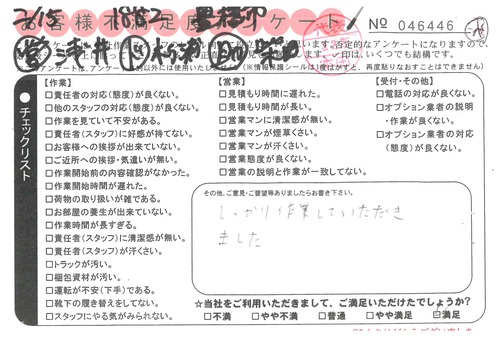 2/15
お客様不満足度アンケート
No 046446
【作業】
□責任者の対応(態度)が良くない。
□他のスタッフの対応(態度)が良くない。
□作業を見ていて不安がある。
□責任者(スタッフ)に好感が持てない。
□お客様への挨拶が出来ていない。
□ご近所への挨拶・気遣いが無い。
□作業開始前の内容確認がなかった。
□作業開始時間が遅れた。
□荷物の取り扱いが雑である。
□お部屋の養生が出来ていない。
□作業時間が長すぎる。
□責任者(スタッフ)に清潔感が無い。
□責任者(スタッフ)が汗くさい。
□トラックが汚い。
□梱包資材が汚い。
□運転が不安(下手)である。
□靴下の履き替えをしてない。
□スタッフにやる気がみられない。
【営業】
□見積もりに遅れた。
□見積もり時間が長い。
□営業マンに清潔感が無い。
□営業マンが煙草くさい。
□営業マンが汗くさい。
□営業態度が良くない。
□営業の説明と作業が一致してない。
【受付・その他】
□電話の対応が良くない。
□オプション業者の説明
・作業が良くない。
□オプション業者の対応
(態度)が良くない。
●チェックリスト
その他、ご意見・ご要望等ありましたらお書き下さい。
しっかり作業していただき
ました
☆当社をご利用いただきまして、ご満足いただけたでしょうか?
□不満 □やや不満 □普通 □やや満足 □満足